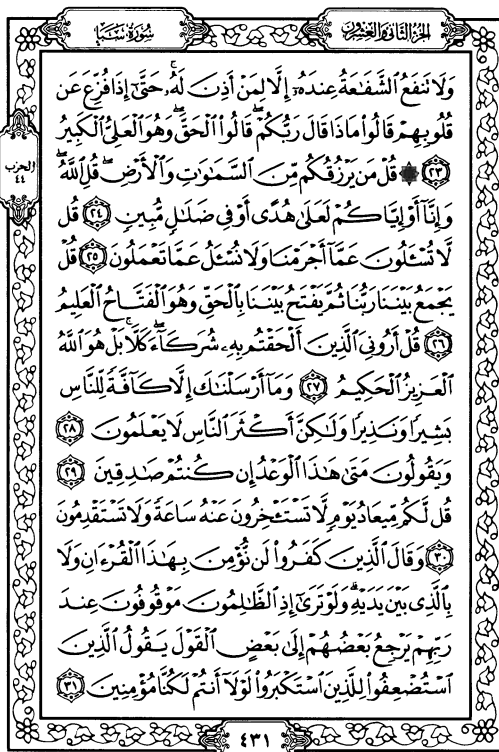 الجزء الثاني والعشرون
سُورَةُ سَبَإٍ
وَلَا تَنفَعُ الشَّفَاعَةُ عِندَهُۥٓ إِلَّا لِمَنْ أَذِنَ لَهُۥۚ حَتَّىٰٓ إِذَا فُزِّعَ عَن
قُلُوبِهِمْ قَالُوا۟ مَاذَا قَالَ رَبُّكُمْۖ قَالُوا۟ الْحَقَّۖ وَهُوَ الْعَلِىُّ الْكَبِيرُ
﴿٢٣﴾ ۞ قُلْ مَن يَرْزُقُكُم مِّنَ السَّمَٰوَٰتِ وَالْأَرْضِۖ قُلِ اللَّهُۖ
وَإِنَّآ أَوْ إِيَّاكُمْ لَعَلَىٰ هُدًى أَوْ فِى ضَلَٰلٍ مُّبِينٍ ﴿٢٤﴾ قُل
لَّا تُسْـَٔلُونَ عَمَّآ أَجْرَمْنَا وَلَا نُسْـَٔلُ عَمَّا تَعْمَلُونَ ﴿٢٥﴾ قُلْ
يَجْمَعُ بَيْنَنَا رَبُّنَا ثُمَّ يَفْتَحُ بَيْنَنَا بِالْحَقِّ وَهُوَ الْفَتَّاحُ الْعَلِيمُ
﴿٢٦﴾ قُلْ أَرُونِىَ الَّذِينَ أَلْحَقْتُم بِهِۦ شُرَكَآءَۖ كَلَّاۚ بَلْ هُوَ اللَّهُ
الْعَزِيزُ الْحَكِيمُ ﴿٢٧﴾ وَمَآ أَرْسَلْنَٰكَ إِلَّا كَآفَّةً لِّلنَّاسِ
بَشِيرًا وَنَذِيرًا وَلَٰكِنَّ أَكْثَرَ النَّاسِ لَا يَعْلَمُونَ ﴿٢٨﴾
وَيَقُولُونَ مَتَىٰ هَٰذَا الْوَعْدُ إِن كُنتُمْ صَٰدِقِينَ ﴿٢٩﴾
قُل لَّكُم مِّيعَادُ يَوْمٍ لَّا تَسْتَـْٔخِرُونَ عَنْهُ سَاعَةً وَلَا تَسْتَقْدِمُونَ
﴿٣٠﴾ وَقَالَ الَّذِينَ كَفَرُوا۟ لَن نُّؤْمِنَ بِهَٰذَا الْقُرْءَانِ وَلَا
بِالَّذِى بَيْنَ يَدَيْهِۗ وَلَوْ تَرَىٰٓ إِذِ الظَّٰلِمُونَ مَوْقُوفُونَ عِندَ
رَبِّهِمْ يَرْجِعُ بَعْضُهُمْ إِلَىٰ بَعْضٍ الْقَوْلَ يَقُولُ الَّذِينَ
اسْتُضْعِفُوا۟ لِلَّذِينَ اسْتَكْبَرُوا۟ لَوْلَآ أَنتُمْ لَكُنَّا مُؤْمِنِينَ ﴿٣١﴾
الحزب
٤٤
٤٣١